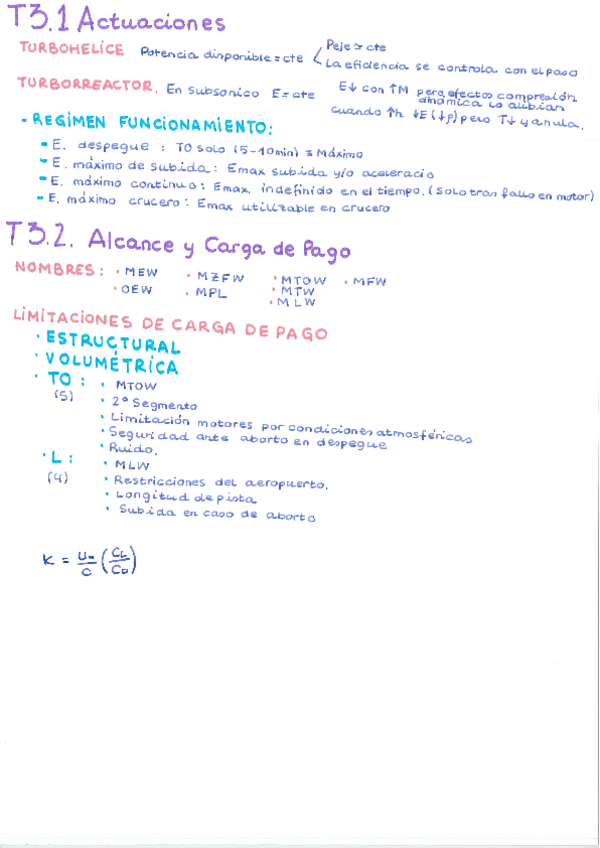 T3.1 Actuaciones
TURBOHÉLICE Potencia disponible = cte < Peje ≃ cte
La eficiencia se controla con el paso
TURBORREACTOR. En subsonico E ≃ cte E↓ con ↑M pero efectos compresión
dinámica lo alivian
cuando ↑h ↓E (↓ρ) pero T↓ y anula.
- REGIMEN FUNCIONAMIENTO:
- E. despegue : TO solo (5-10min) ≡ Máximo
- E. máximo de subida: Emax subida y/o aceleracio
- E. máximo continuo: Emax. indefinido en el tiempo. (Solo tras fallo en motor)
- E. máximo crucero: Emax utilizable en crucero
T3.2. Alcance y Carga de Pago
NOMBRES: · MEW · MZFW · MTOW · MFW
· OEW · MPL · MTW
· MLW
LIMITACIONES DE CARGA DE PAGO
· ESTRUCTURAL
· VOLUMÉTRICA
· TO : · MTOW
(5) · 2º Segmento
· Limitación motores por condiciones atmosféricas
· Seguridad ante aborto en despegue
· Ruido.
· L : · MLW
(4) · Restricciones del aeropuerto.
· Longitud de pista
· Subida en caso de aborto
K = U∞/C (CL/CD)